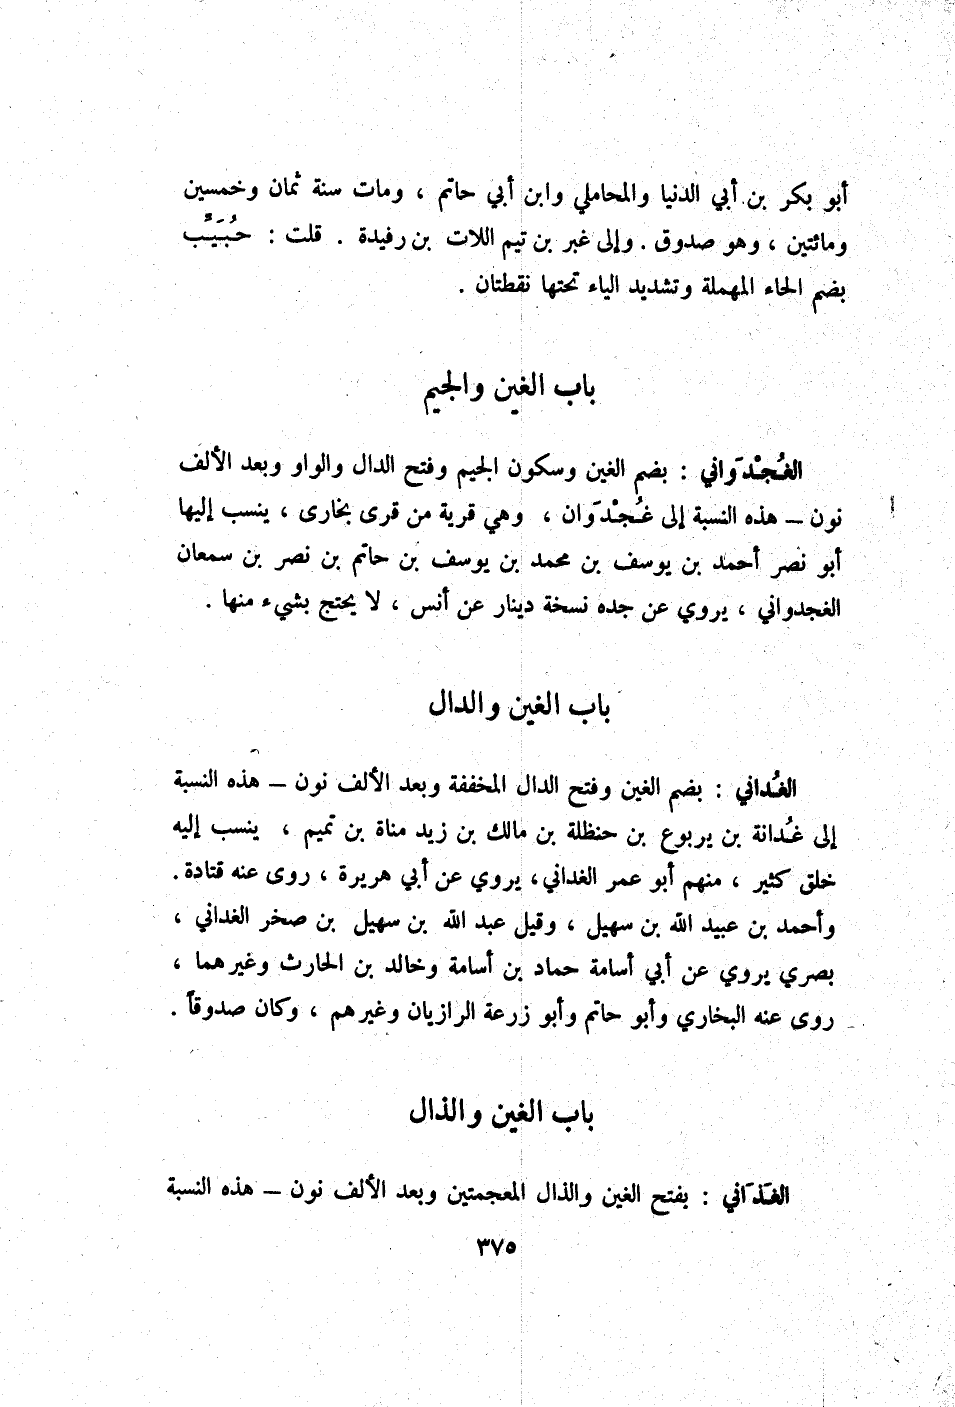 أبو بكر بن أبي الدنيا والمحاملي وابن أبي حاتم ، ومات سنة ثمان وخمسين
ومائتين ، وهو صدوق . وإلى غبر بن تيم اللات بن رفيدة . قلت : حُبَيَّب
بضم الحاء المهملة وتشديد الياء تحتها نقطتان .
باب الغين والجيم
الغُجْدَواني : بضم الغين وسكون الجيم وفتح الدال والواو وبعد الألف
نون – هذه النسبة إلى غُجْدَوان ، وهي قرية من قرى بخارى ، ينسب إليها
أبو نصر أحمد بن يوسف بن محمد بن يوسف بن حاتم بن نصر بن سمعان
الغجدواني ، يروي عن جده نسخة دينار عن أنس ، لا يحتج بشيء منها .
باب الغين والدال
الغُداني : بضم الغين وفتح الدال المخففة وبعد الألف نون – هذه النسبة
إلى غُدانة بن يربوع بن حنظلة بن مالك بن زيد مناة بن تميم ، ينسب إليه
خلق كثير ، منهم أبو عمر الغداني ، يروي عن أبي هريرة ، روى عنه قتادة .
وأحمد بن عبيد الله بن سهيل ، وقيل عبد الله بن سهيل بن صخر الغداني ،
بصري يروي عن أبي أسامة حماد بن أسامة وخالد بن الحارث وغيرهما ،
روى عنه البخاري وأبو حاتم وأبو زرعة الرازيان وغيرهم ، وكان صدوقاً .
باب الغين والذال
الغَذَاني : بفتح الغين والذال المعجمتين وبعد الألف نون – هذه النسبة
٣٧٥